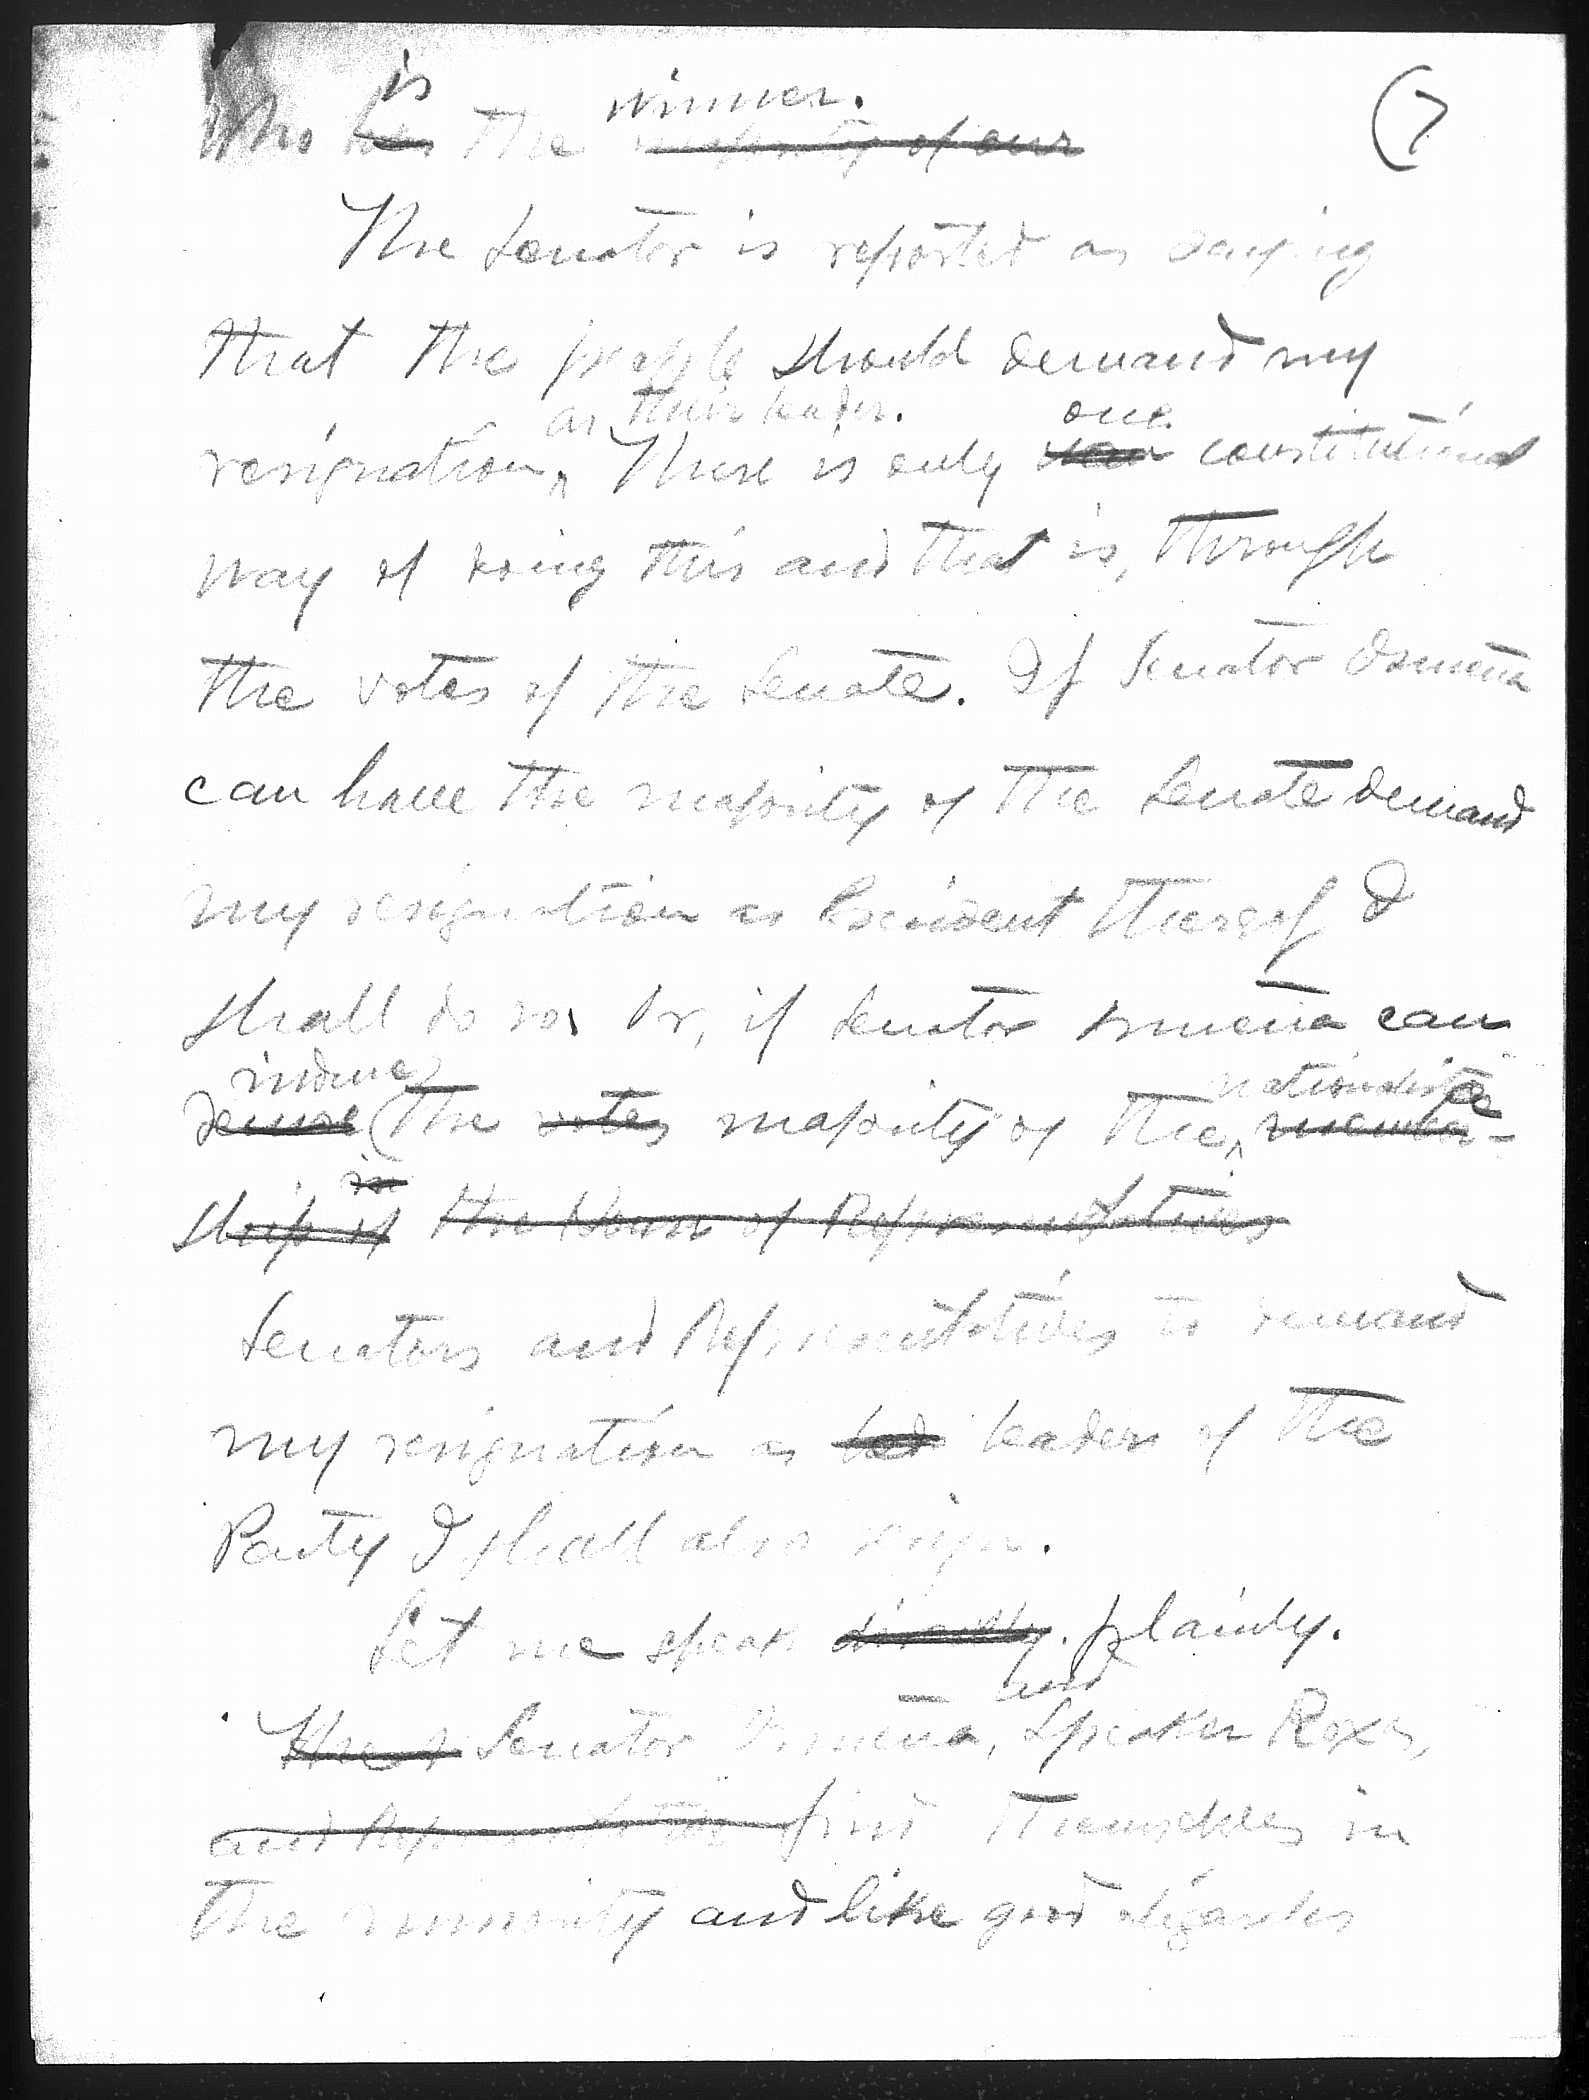 (7
is winner.
Who has the majority of our
The Senator is reported as saying
that the people should demand my
as their leader. one
resignation ^ There is only constitutional
way of doing this and that is, through
the votes of the Senate. If Senator Osmeña
can have the majority of the Senate demand
my resignation as President thereof I
shall do so. Or, if Senator Osmeña can
induce nationalista
the votes majority of the ^ member-
in
ship of the House of Representatives
Senators and Representatives to demand
my resignation as leader of the
Party I shall also resign.
Let me speak directly. plainly.
and
Senator Osmeña, Speaker Roxas,
and Representative find themselves in
the minority and like good oligarchs